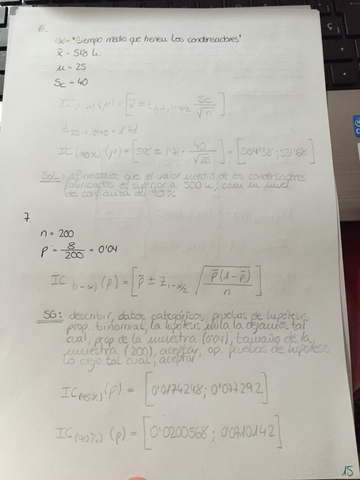 6.
x = "tiempo medio que tienen los condensadores"
x̄ = 518 h.
n = 25
Sc = 40
IC(1-α)(μ) = [x̄ ± t n-1, 1-α/2 Sc/√n]
t 25-1, 0'90 = 1'71
IC(90%)(μ) = [518 ± 1'71 · 40/√25] = [504'38; 531'68]
Sol: afirmamos que el valor medio de los condensadores
fabricados es superior a 500 h, con un nivel
de confianza del 90%
7.
n = 200
p = 8/200 = 0'04
IC(1-α)(p) = [p̄ ± z 1-α/2 √(p̄(1-p̄)/n)]
SG: describir, datos categóricos, pruebas de hipótesis
prop. binomial, la hipótesis nula la dejamos tal
cual, prop de la muestra (0'04), tamaño de la
muestra (200), aceptar, op. pruebas de hipótesis,
lo dejo tal cual, aceptar
IC(95%)(p) = [0'0174248; 0'077292]
IC(90%)(p) = [0'0200568; 0'0710142]
15